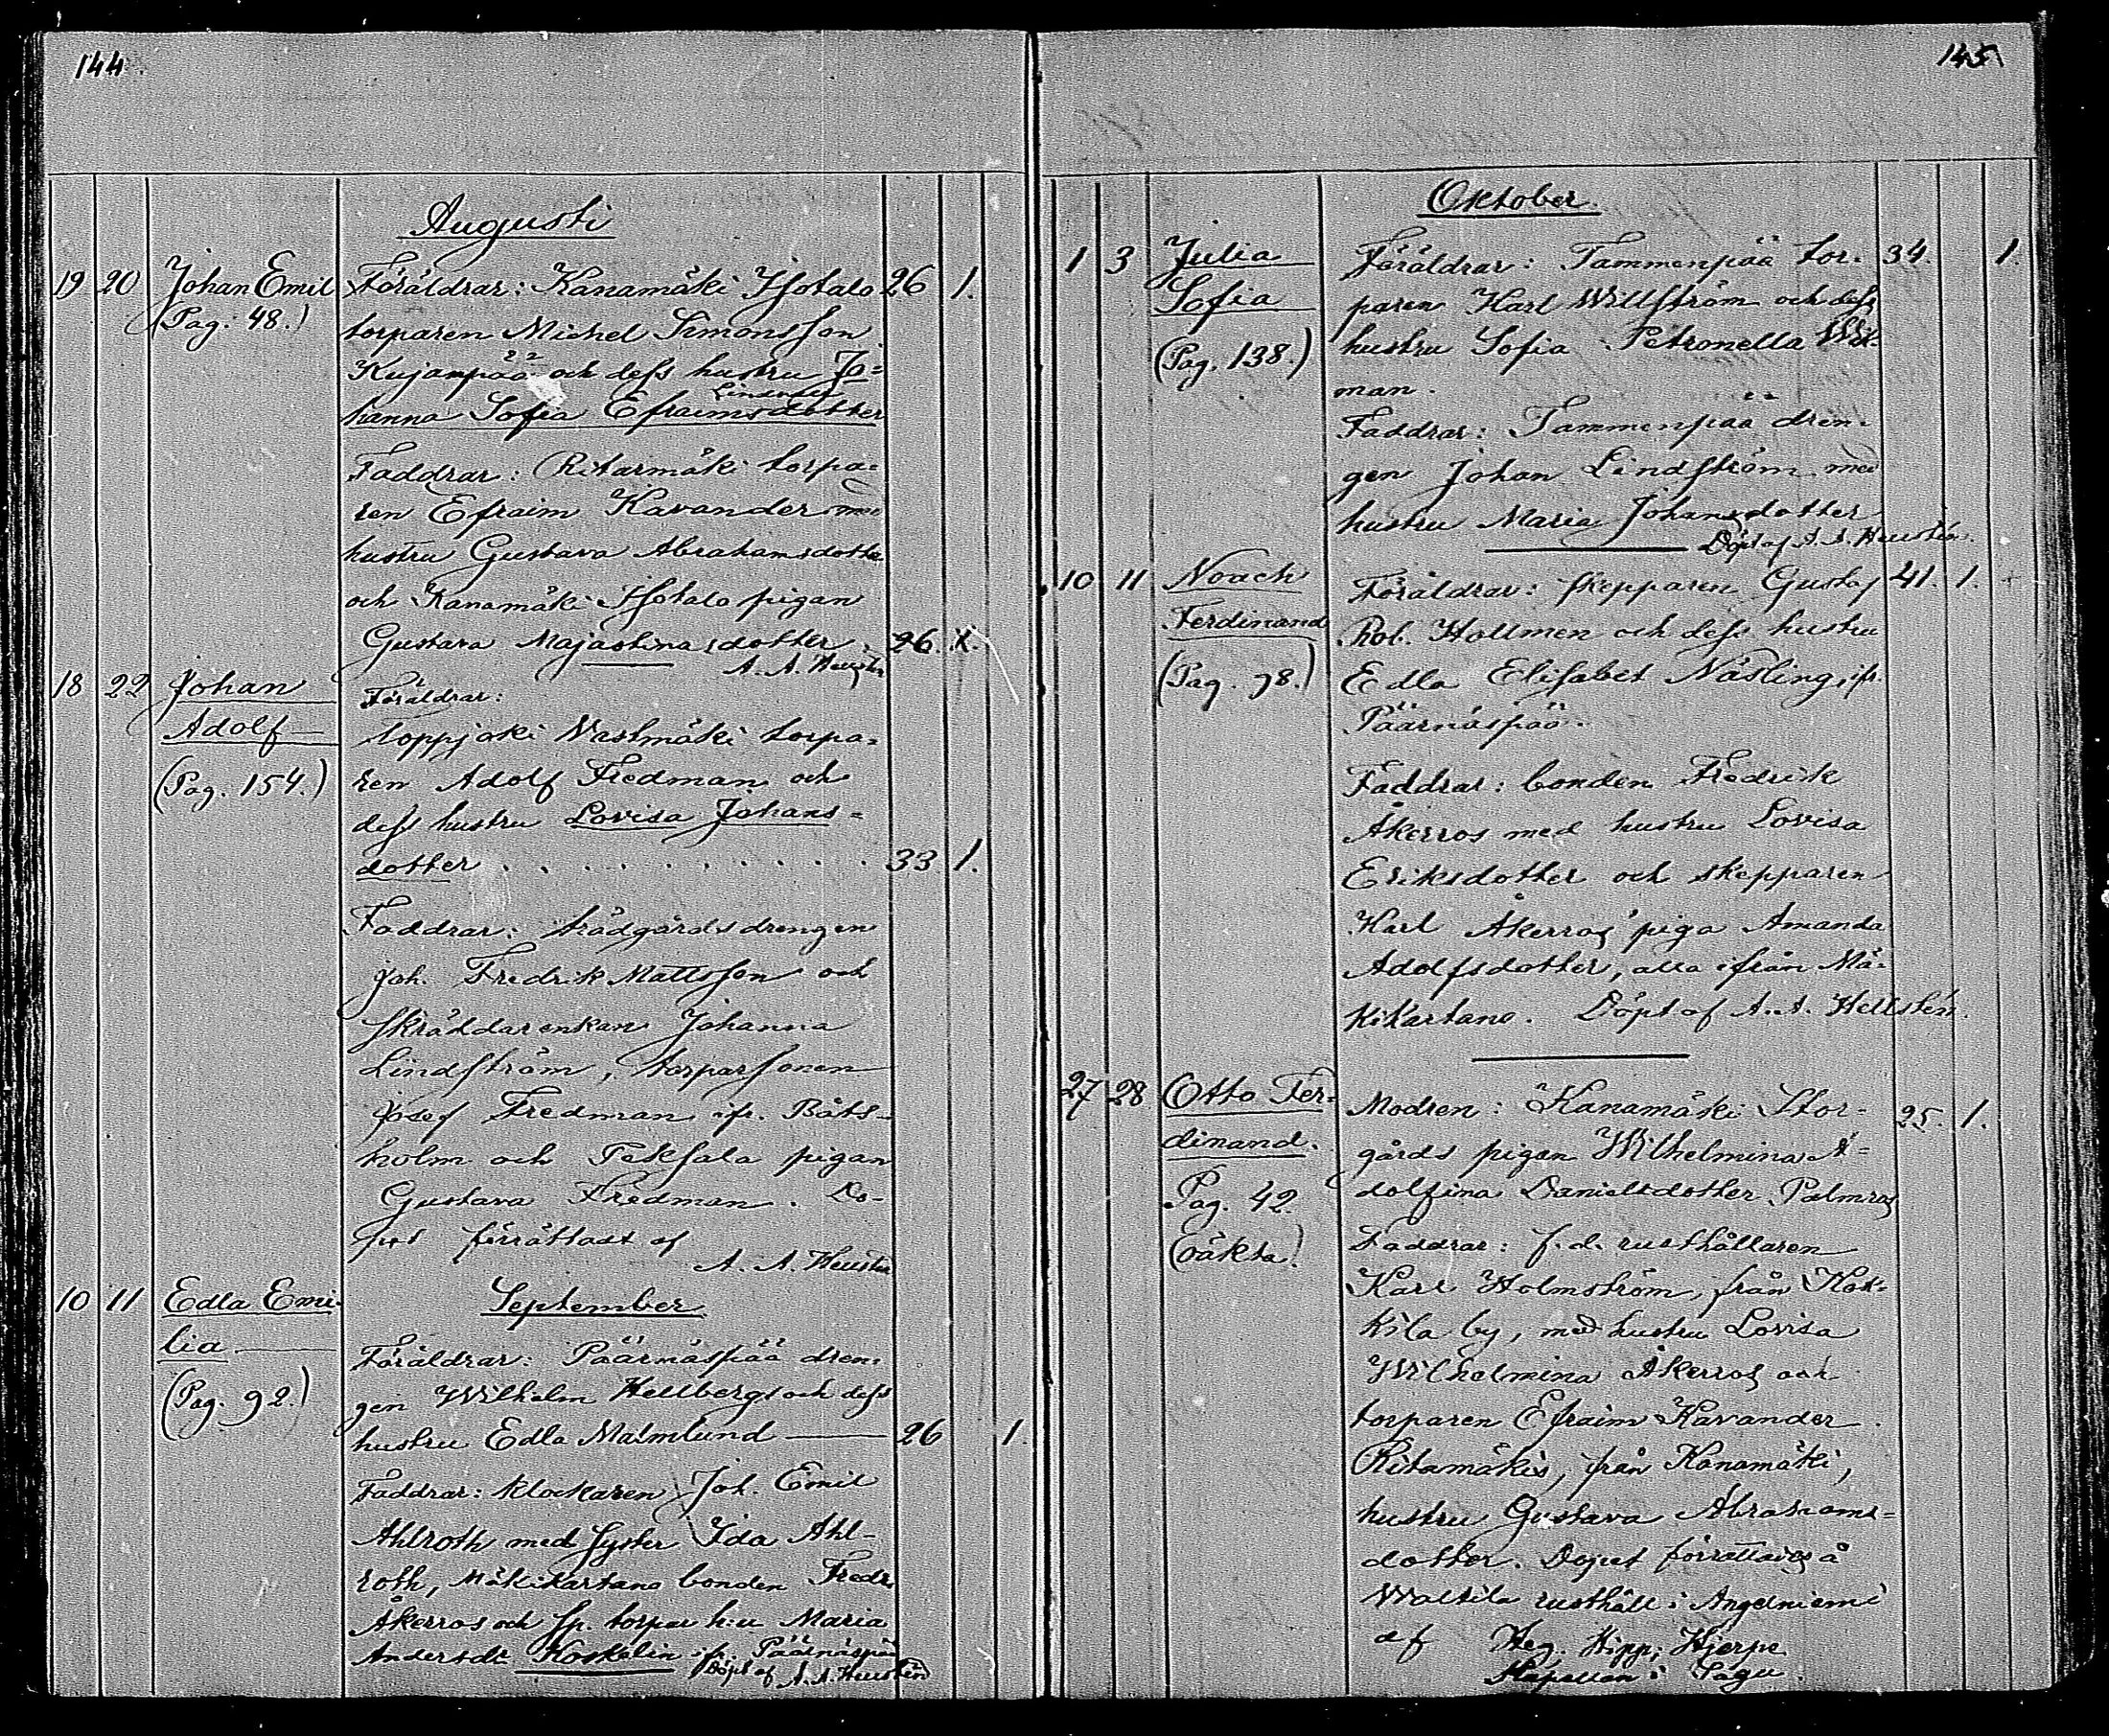 144.
Augusti
19 20 Johan Emil Föräldrar: Kanamäki Isotalo 26 1.
(Pag. 48.) torparen Michel Simonsson
Kujanpää och dess hustru Jo=
Lindroos
hanna Sofia Efraimsdotter
Faddrar: Ritarmäki torpa=
ren Efraim Kavander med
hustru Gustava Abrahamsdotter
och Kanamäki Isotalo pigan
Gustava Majastinasdotter. 26. 1.
A. A. Hellstén
18 22 Johan Föräldrar:
Adolf Toppjoki Vastmäki torpa=
(Pag. 154.) ren Adolf Fredman och
dess hustru Lovisa Johans=
dotter . . . . . . . . . . . 33 1.
Faddrar: trädgårdsdrengen
Joh. Fredrik Mattsson och
skräddarenkan Johanna
Lindström, torparsonen
Josef Fredman ifr. Båts=
holm och Teksala pigan
Gustava Fredman. Do-
pet förrättadt af
A. A. Hellstén
10 11 Edla Emi- September
lia Föräldrar: Päärnäspää dren-
(Pag. 92.) gen Wilhelm Hellberg och dess
hustru Edla Malmlund 26 1.
Faddrar: klockaren Joh. Emil
Ahlroth med syster Ida Ahl-
roth, Mäkikartano bonden Fredr.
Åkerros och sp. torpar h:u Maria
Andersdr Koskelin ifr. Päärnäspää
Döpt af A. A. Hellstén
145
Oktober.
1 3 Julia Föräldrar: Tammenpää tor- 34. 1.
Sofia paren Karl Willström och dess
(Pag. 138.) hustru Sofia Petronella Wik-
man.
Faddrar: Tammenpää dren-
gen Johan Lindström med
hustru Maria Johansdotter
Döpt af A. A. Hellstén.
10 11 Noach Föräldrar: skepparen Gustaf 41. 1.
Ferdinand Rob. Hollmen och dess hustru
(Pag. 78.) Edla Elisabet Näsling, ifr.
Päärnäspää.
Faddrar: bonden Fredrik
Åkerros med hustru Lovisa
Eriksdotter och skepparen
Karl Åkerros' piga Amanda
Adolfsdotter, alla ifrån Mä-
kikartano. Döpt af A. A. Hellstén.
27 28 Otto Fer- Modren: Kanamäki Stor- 25. 1.
dinand. gårds pigan Wilhelmina A=
Pag. 42. dolfina Danielsdotter Palmros
(oäkta) Faddrar: f.d. rusthållaren
Karl Holmström, från Kok-
kila by, med hustru Lovisa
Wilhelmina Åkerros och
torparen Efraim Kavander
Ritamäkis, från Kanamäki,
hustru Gustava Abrahams=
dotter. Dopet förrättades å
Waltila rusthåll i Angelniemi
af Hjerpe
Kapellan i Sagu.